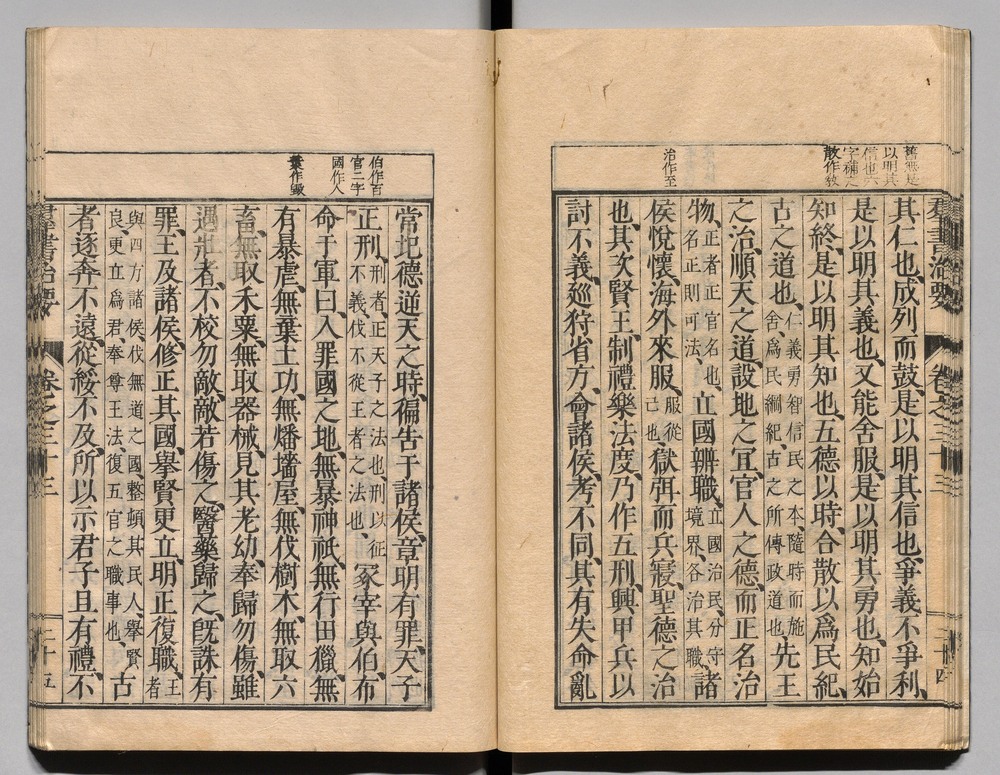 舊無是
以明其
信也六
字補之
散作教
治作至
其仁也、成列而鼓、是以明其信也、爭義不爭利、
是以明其義也、又能舍服、是以明其勇也、知始
知終、是以明其知也、五德以時、合散以爲民紀、
古之道也、仁義勇智信、民之本、隨時而施
舍、爲民綱紀、古之所傳政道也、先王
之治、順天之道、設地之宜、官人之德、而正名治
物、正者正官名也、
名正則可法、立國辨職、立國治民、分守
境界、各治其職、諸
侯悅懷、海外來服、服從
己也、獄弭而兵寢、聖德之治
也、其次賢王、制禮樂法度、乃作五刑、興甲兵以
討不義、巡狩省方、會諸侯、考不同、其有失命亂
群書治要 卷之三十三 二十四
伯作百
官二字
國作人
作毀
常圮德逆天之時、徧告于諸侯、章明有罪、天子
正刑、刑者、正天子之法也、刑以征
不義、伐不從王者之法也、冢宰與伯、布
命于軍曰、入罪國之地、無暴神祇、無行田獵、無
有暴虐、無棄土功、無燔墻屋、無伐樹木、無取六
畜、無取禾粟、無取器械、見其老幼、奉歸勿傷、雖
遇壯者、不校勿敵、敵若傷之、醫藥歸之、旣誅有
罪、王及諸侯修正其國、擧賢更立、明正復職、王者
與四方諸侯、伐無道之國、整頓其民人、擧賢
良更立爲君、奉尊王法、復五官之職事也、古
者逐奔不遠、從綏不及、所以示君子且有禮、不
群書治要 卷之三十三 二十五